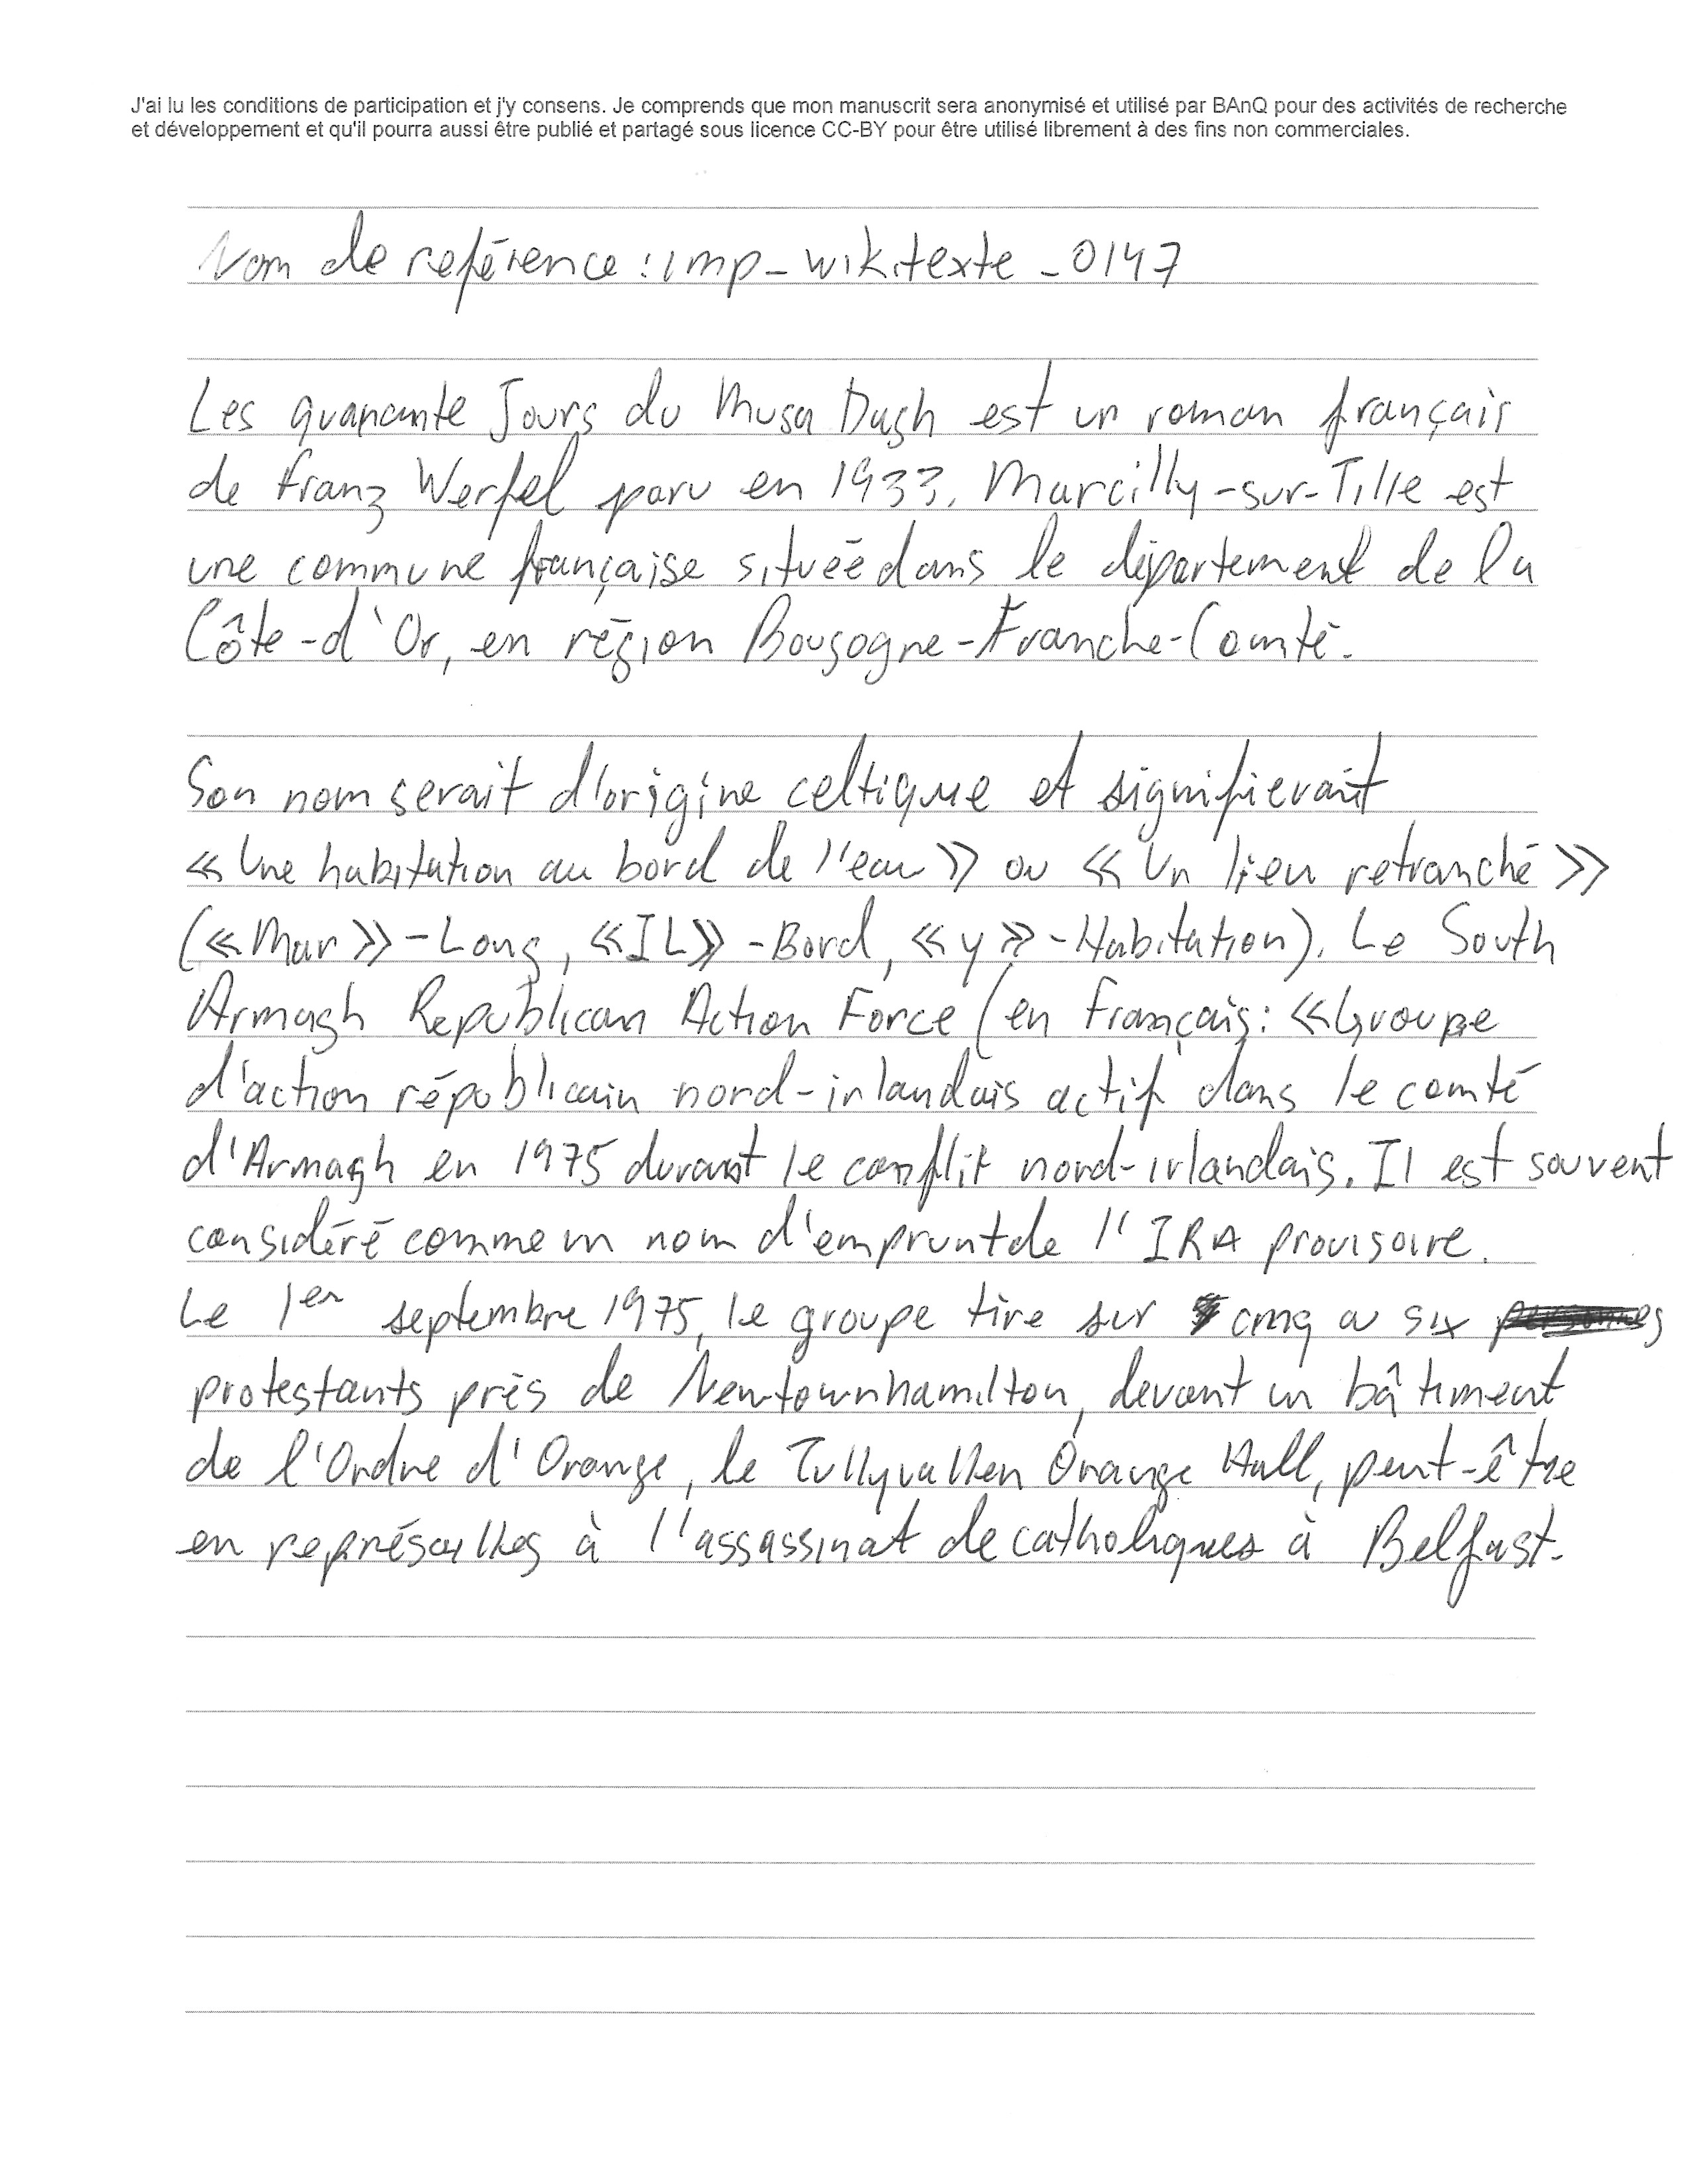 J'ai lu les conditions de participation et j'y consens. Je comprends que mon manuscrit sera anonymisé et utilisé par BAnQ pour des activités de recherche
et développement et qu'il pourra aussi être publié et partagé sous licence CC-BY pour être utilisé librement à des fins non commerciales.
Nom de reférence : imp_wikitexte_0147
Les quarante Jours du Musa Dagh est un roman français
de Franz Werfel paru en 1933. Marcilly-sur-Tille est
une commune française située dans le département de la
Côte-d'Or, en région Bougogne-Franche-Comté.
Son nom serait d'origine celtique et signifierait
« Une habitation au bord de l'eau » ou « Un lieu retranché »
(« Mar » - Long, « IL » - Bord, « y » - Habitation). Le South
Armagh Republican Action Force (en Français : « Groupe
d'action républicain nord-irlandais actif dans le comté
d'Armagh en 1975 durant le conflit nord-irlandais. Il est souvent
considéré comme un nom d'emprunt de l'IRA provisoire.
Le 1er septembre 1975, le groupe tire sur cinq ou six
protestants près de Newtownhamilton, devant un bâtiment
de l'Ordre d'Orange, le Tullyvallen Orange Hall, peut-être
en représailles à l'assassinat de catholiques à Belfast.